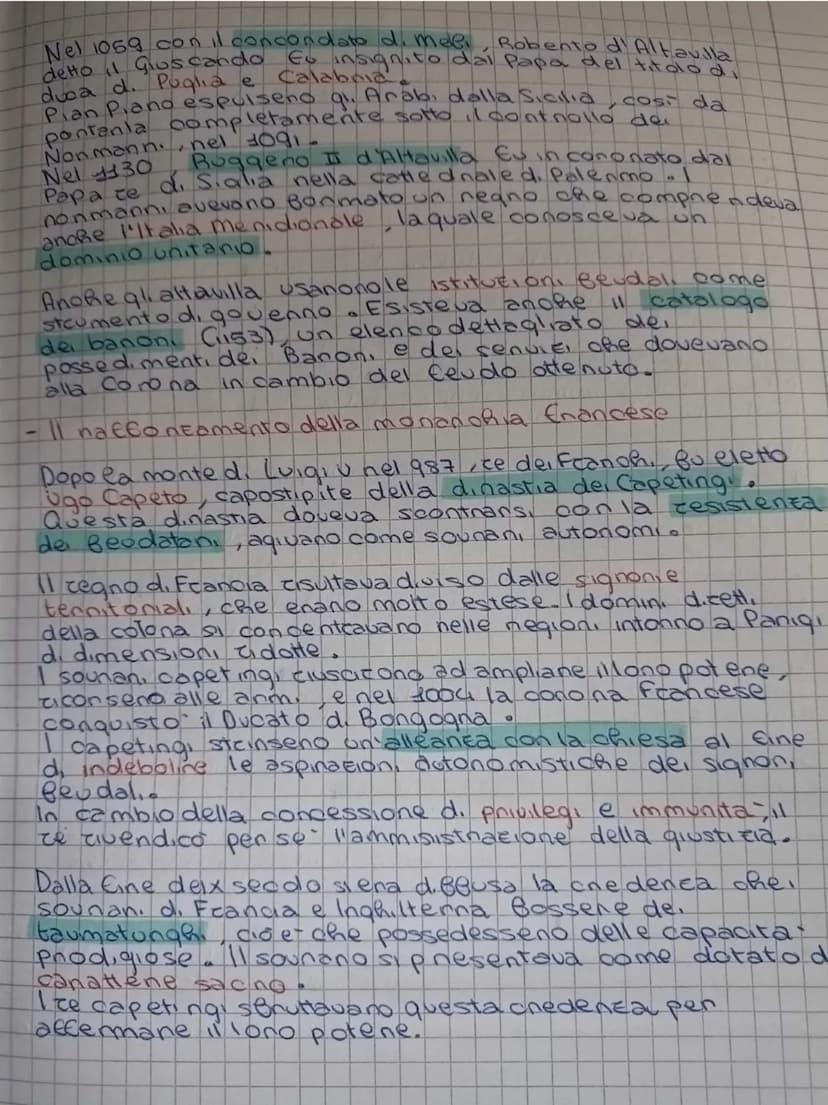 Nel 1059 con il concondato di melfi, Roberto d'Altavilla
detto il Guiscardo fu insignito dal Papa del titolo di
duca di Puglia e Calabria.
Pian Piano espulsero gli Arabi dalla Sicilia, così da
portarla completamente sotto il controllo dei
Normanni, nel 1091.
Nel 1130, Ruggero II d'Altavilla fu incoronato dal
Papa re di Sicilia nella cattedrale di Palermo. I
normanni avevano formato un regno che comprendeva
anche l'Italia meridionale, la quale conosceva un
dominio unitario.
Anche gli altavilla usarono le istituzioni feudali come
strumento di governo. Esisteva anche il catalogo
dei baroni (1153), un elenco dettagliato dei
possedimenti dei Baroni e dei servizi che dovevano
alla Corona in cambio del feudo ottenuto.
- Il rafforzamento della monarchia francese
Dopo la morte di Luigi V nel 987, re dei Franchi, fu eletto
Ugo Capeto, capostipite della dinastia dei Capetingi.
Questa dinastia doveva scontrarsi con la resistenza
dei feudatari, agivano come sovrani autonomi.
Il regno di Francia risultava diviso dalle signorie
territoriali, che erano molto estese. I domini diretti
della colona si concentravano nelle regioni intorno a Parigi
di dimensioni ridotte.
I sovrani capetingi riuscirono ad ampliare il loro potere,
ricorsero alle armi, e nel 1004 la corona francese
conquistò il Ducato di Borgogna.
I capetingi strinsero un'alleanza con la chiesa al fine
di indebolire le aspirazioni autonomistiche dei signori
feudali.
In cambio della concessione di privilegi e immunità, il
re rivendicò per sé l'ammisistrazione della giustizia.
Dalla fine del X secolo si era diffusa la credenza che i
sovrani di Francia e Inghilterra fossere dei
taumaturghi, cioè che possedessero delle capacità
prodigiose. Il sovrano si presentava come dotato d
carattere sacro.
I re capetingi sfruttavano questa credenza per
affermare il loro potere.